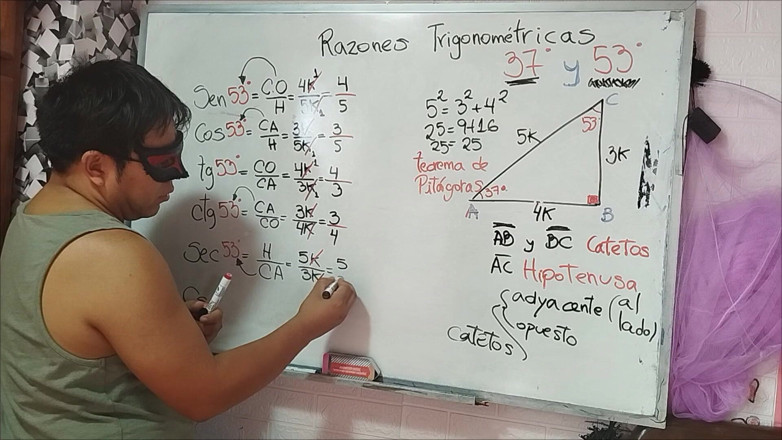 Razones Trigonométricas
37° y 53°
Sen 53° = C.O/H = 4K/5K = 4/5
Cos 53° = CA/H = 3K/5K = 3/5
tg 53° = CO/CA = 4K/3K = 4/3
ctg 53° = CA/CO = 3K/4K = 3/4
Sec 53° = H/CA = 5K/3K = 5
5² = 3² + 4²
25 = 9+16
25 = 25
teorema de
Pitágoras
C
53°
5K
3K
37°
A
4K
B
AB y BC Catetos
AC Hipotenusa
catetos
adyacente (al
lado)
opuesto